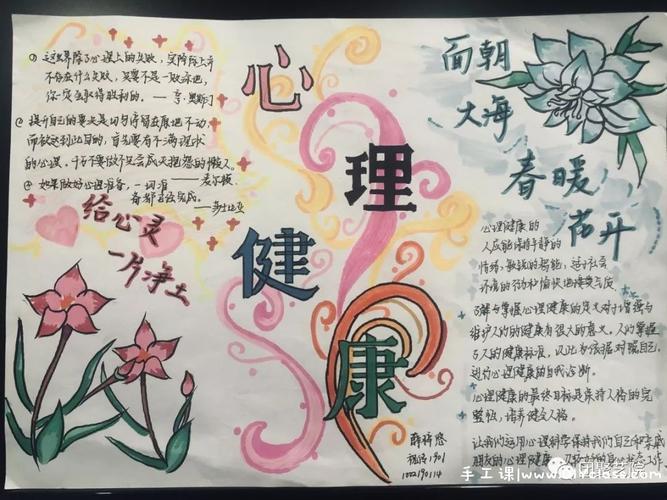 心理健康
① 这世界除了心理上的失败，实际上并
不存在什么失败，只要不是一败涂地，
你一定会取得胜利的。——亨·奥斯汀
② 提升自己的要决是切勿停留在原地不动，
而欲达到此目的，首先要有不满现状
的心理。
③ 如果做好心理准备，一切准
备都已经完成。
——莎士比亚
给心灵
一片净土
面朝
大海
春暖
花开
心理健康的
人应能保持平静的
情绪，敏锐的智能，适于社会
环境的行为和愉快的
了解与掌握心理健康的定义对于增强与
维护人们的健康有很大的意义。人们掌握
了人的健康标准，以此为依据对照自己，
进行心理健康的自我诊断。
心理健康的最终目标是保持人格的完
整性，培养健全人格。
让我们运用心理科学保持我们自己和亲戚
朋友的心理健康，
1901
1002190114
手工课